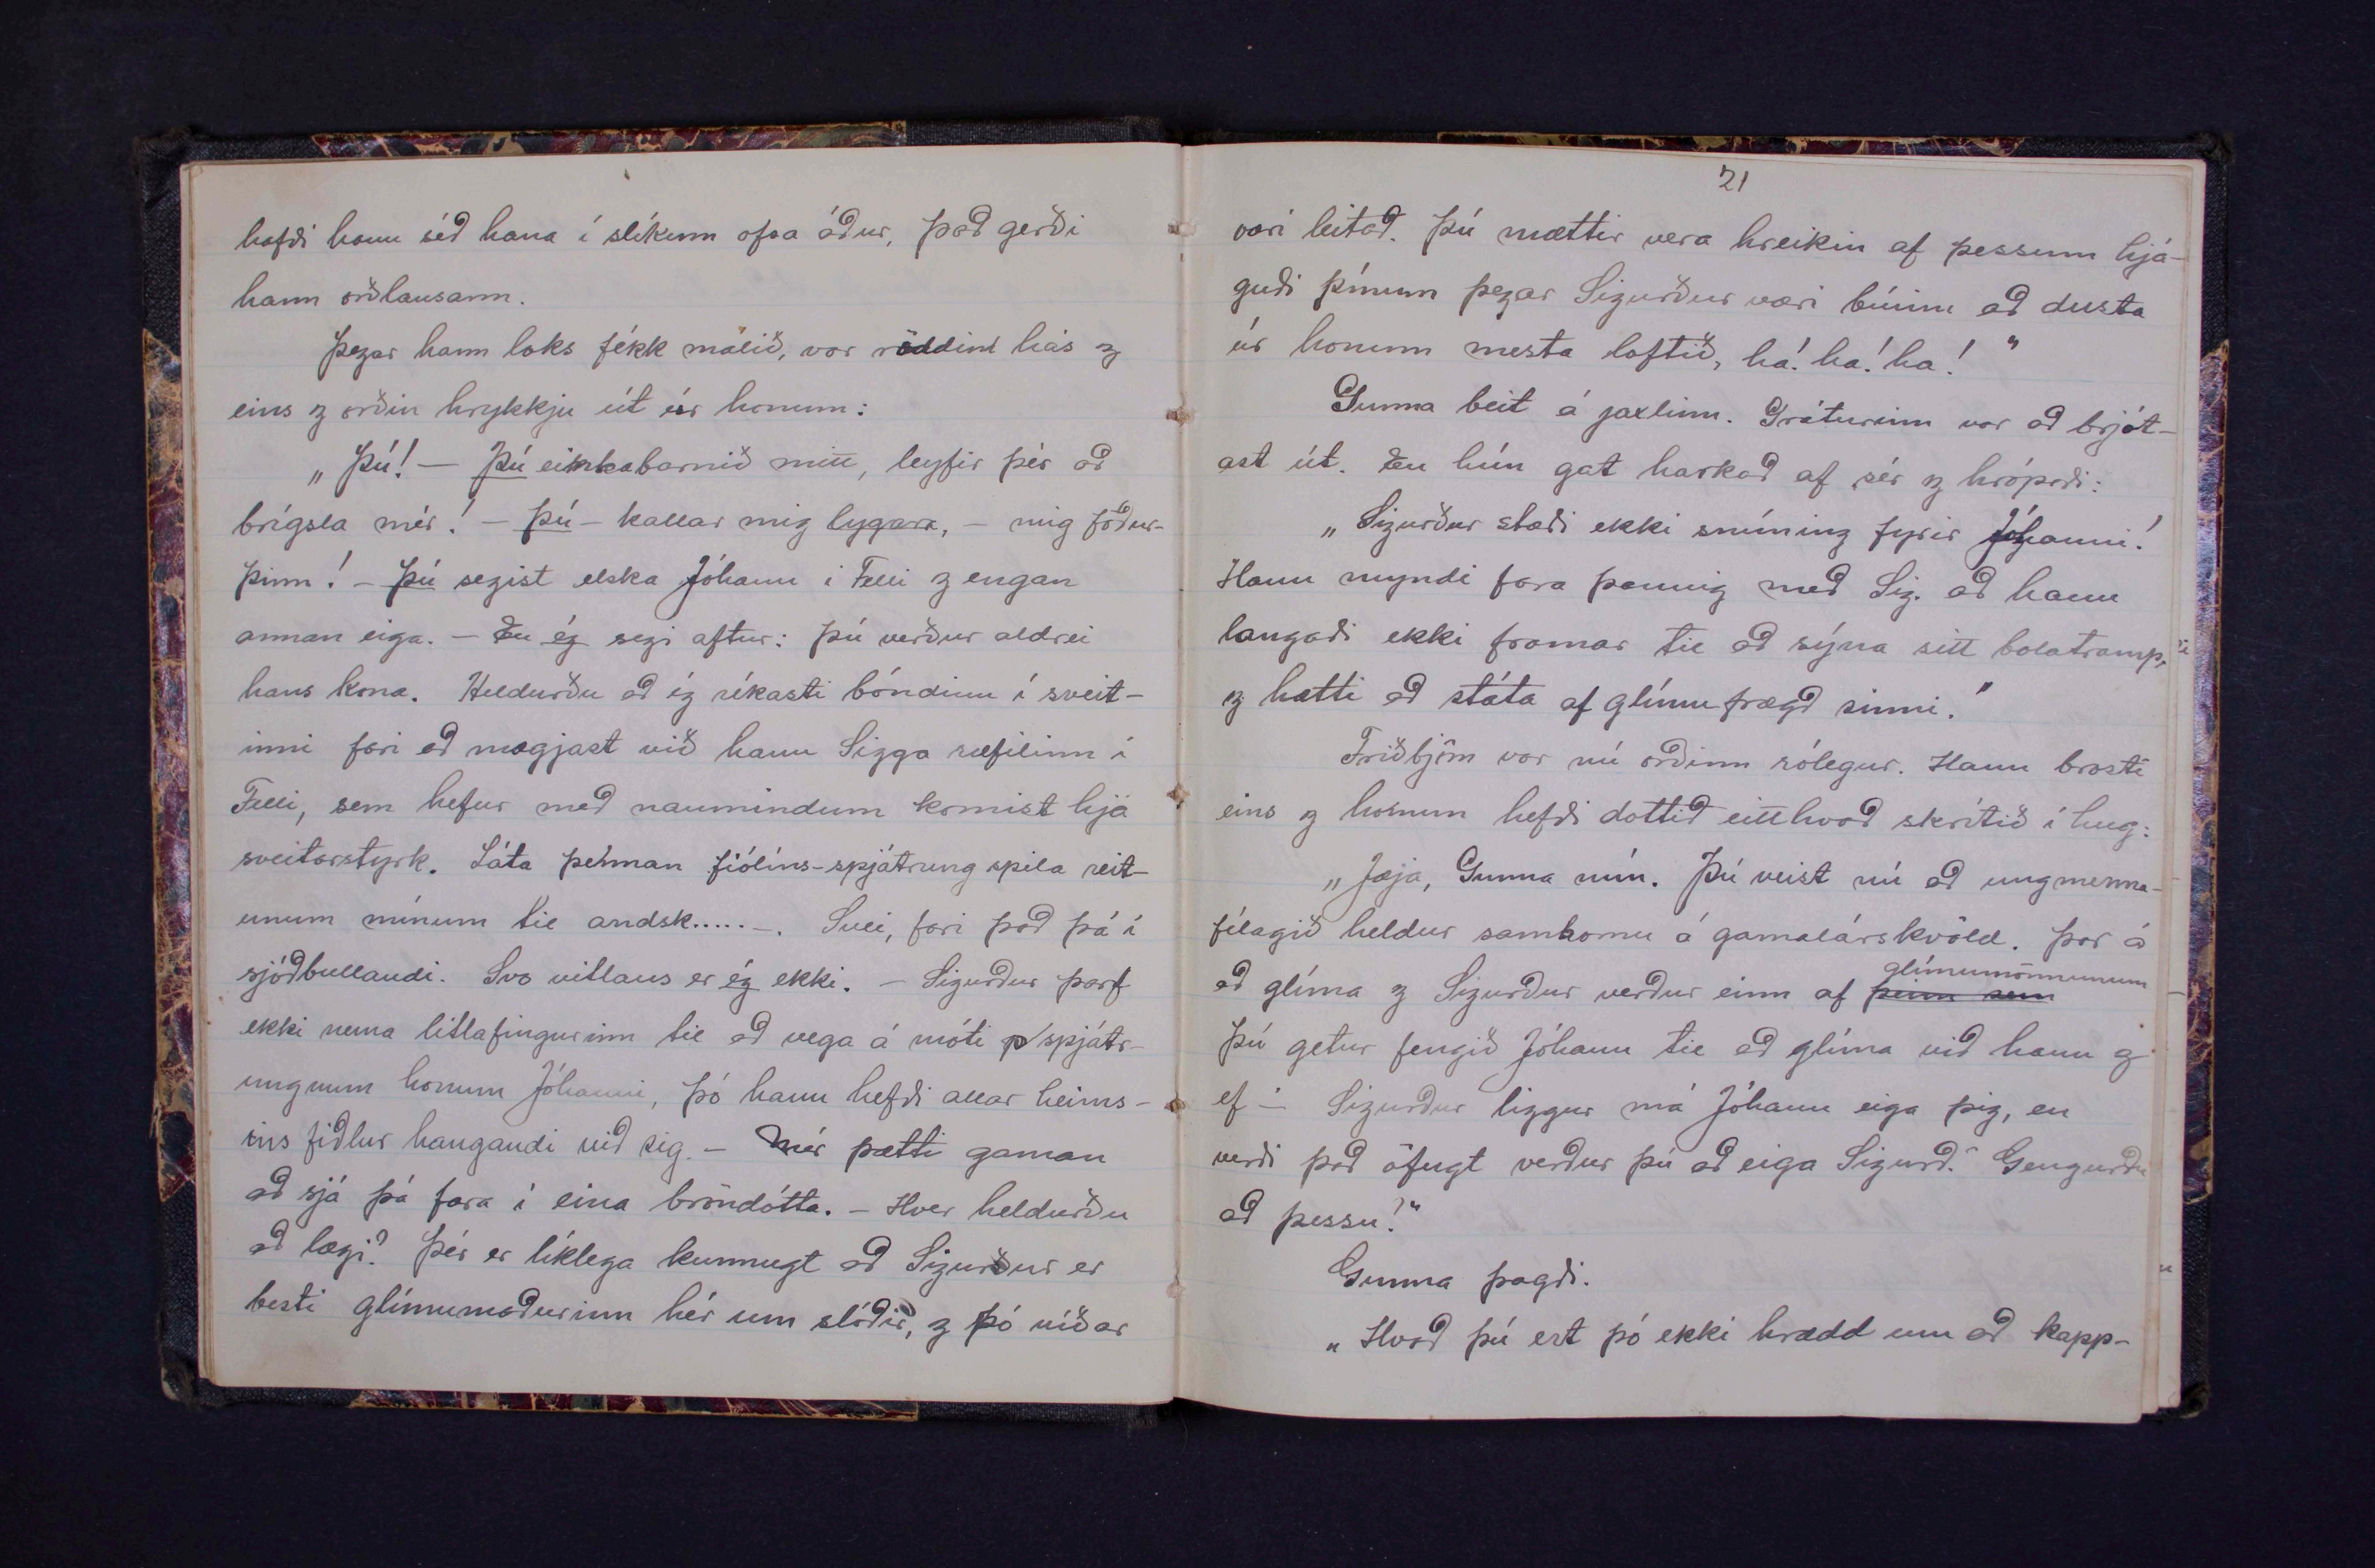 hafði hann séð hana í slíkum ofsa áður, það gerði
hann orðlausann.
Þegar hann loks fékk málið, var röddin hás og
eins og orðin hrykkju út úr honum:
„Þú! — Þú einkabarnið mitt, leyfir þér að
brígsla mér! — Þú — kallar mig lygara, — mig föður-
þinn! — Þú segist elska Jóhann í Felli og engan
annan eiga. — En ég segi aftur: Þú verður aldrei
hans kona. Heldurðu að ég ríkasti bóndinn í sveit-
inni fari að mægjast við hann Sigga ræfilinn í
Felli, sem hefur með naumindum komist hjá
sveitarstyrk. Láta þennan fiólíns-spjátrung spila reit-
unum mínum til andsk..... —. Svei, fari það þá í
sjóðbullandi. Svo vitlaus er ég ekki. — Sigurður þarf
ekki nema litlafingurinn til að vega á móti spjátr-
ungnum honum Jóhanni, þó hann hefði allar heims-
ins fiðlur hangandi við sig. — Mér þætti gaman
að sjá þá fara í eina bröndótta. — Hver heldurðu
að lægi? Þér er líklega kunnugt að Sigurður er
besti glímumaðurinn hér um slóðir, og þó víðar
21
væri leitað. Þú mættir vera hreikin af þessum hjá-
guði þínum þegar Sigurður væri búinn að dusta
úr honum mesta loftið, ha! ha! ha!"
Gunna beit á jaxlinn. Gráturinn var að brjót-
ast út. En hún gat harkað af sér og hrópaði:
„Sigurður stæði ekki snúning fyrir Jóhanni!
Hann myndi fara þannig með Sig. að hann
langaði ekki framar til að sýna sitt bolatramp,
og hætti að státa af glímufrægð sinni."
Friðbjörn var nú orðinn rólegur. Hann brosti
eins og honum hefði dottið eitthvað skrítið í hug:
„Jæja, Gunna mín. Þú veist nú að ungmenna-
félagið heldur samkomu á gamalárskvöld. Þar á
að glíma og Sigurður verður einn af þeim sem glímumönnunum
Þú getur fengið Jóhann til að glíma við hann og
ef — Sigurður liggur má Jóhann eiga þig, en
verði það öfugt verður þú að eiga Sigurð." Gengurðu
að þessu!"
Gunna þagði.
„Hvað þú ert þó ekki hrædd um að kapp-